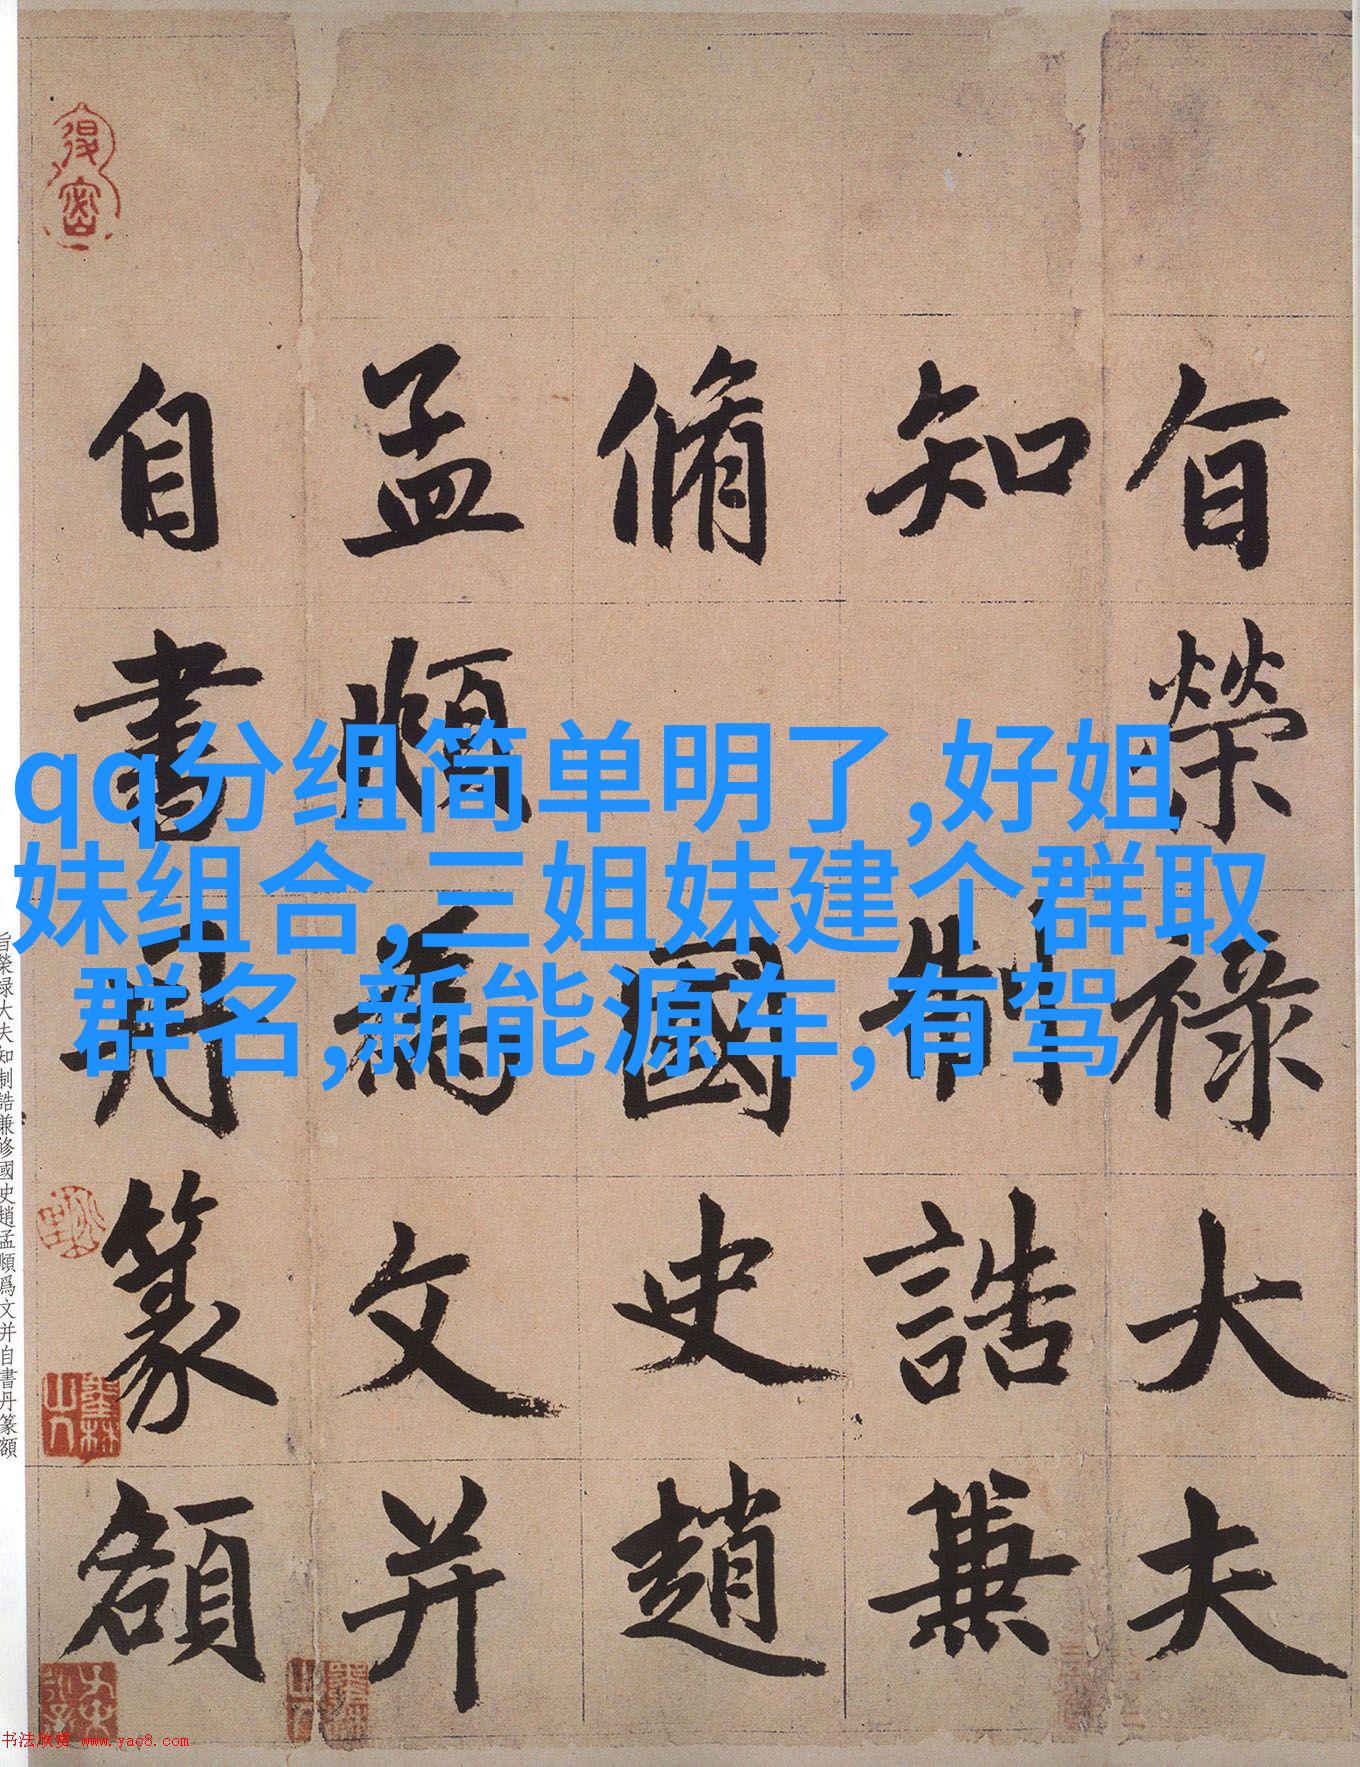 旨榮祿大夫
知制誥兼
脩國史趙
孟頫為文并
自書丹篆額
qq分组简单明了,好姐
妹组合,三姐妹建个群取
群名,新能源车,有驾
旨榮禄大夫知制誥兼修國史趙孟頫爲文并自書丹篆額
书法欣赏 www.yac8.com